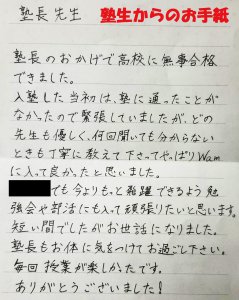 塾長先生 塾生からのお手紙
塾長のおかげで高校に無事合格
できました。
入塾した当初は、塾に通ったことが
なかったので緊張していましたが、どの
先生も優しく、何回聞いても分からない
ときも丁寧に教えて下さってやっぱりWam
に入って良かったと思いました。
でも今よりもっと飛躍できるよう勉
強会や部活にも入って頑張りたいと思います。
短い間でしたがお世話になりました。
塾長もお体に気をつけてお過ごし下さい。
毎回授業が楽しかったです。
ありがとうございました!